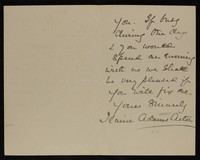 you. If only
during the day
& you would
spend an evening
with us we shall
be very pleased if
you will fix one
Yours Sincerely
Jeanie Adams Acton